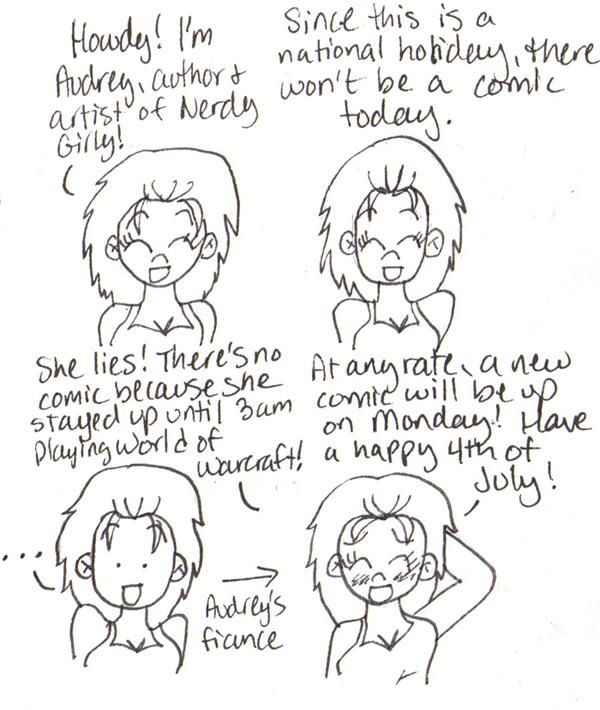 Howdy! I'm
Audrey, author &
artist of Nerdy
Girly!
Since this is a
national holiday, there
won't be a comic
today.
She lies! There's no
comic because she
stayed up until 3am
playing World of
Warcraft!
...
Audrey's
fiance
At any rate, a new
comic will be up
on Monday! Have
a happy 4th of
July!